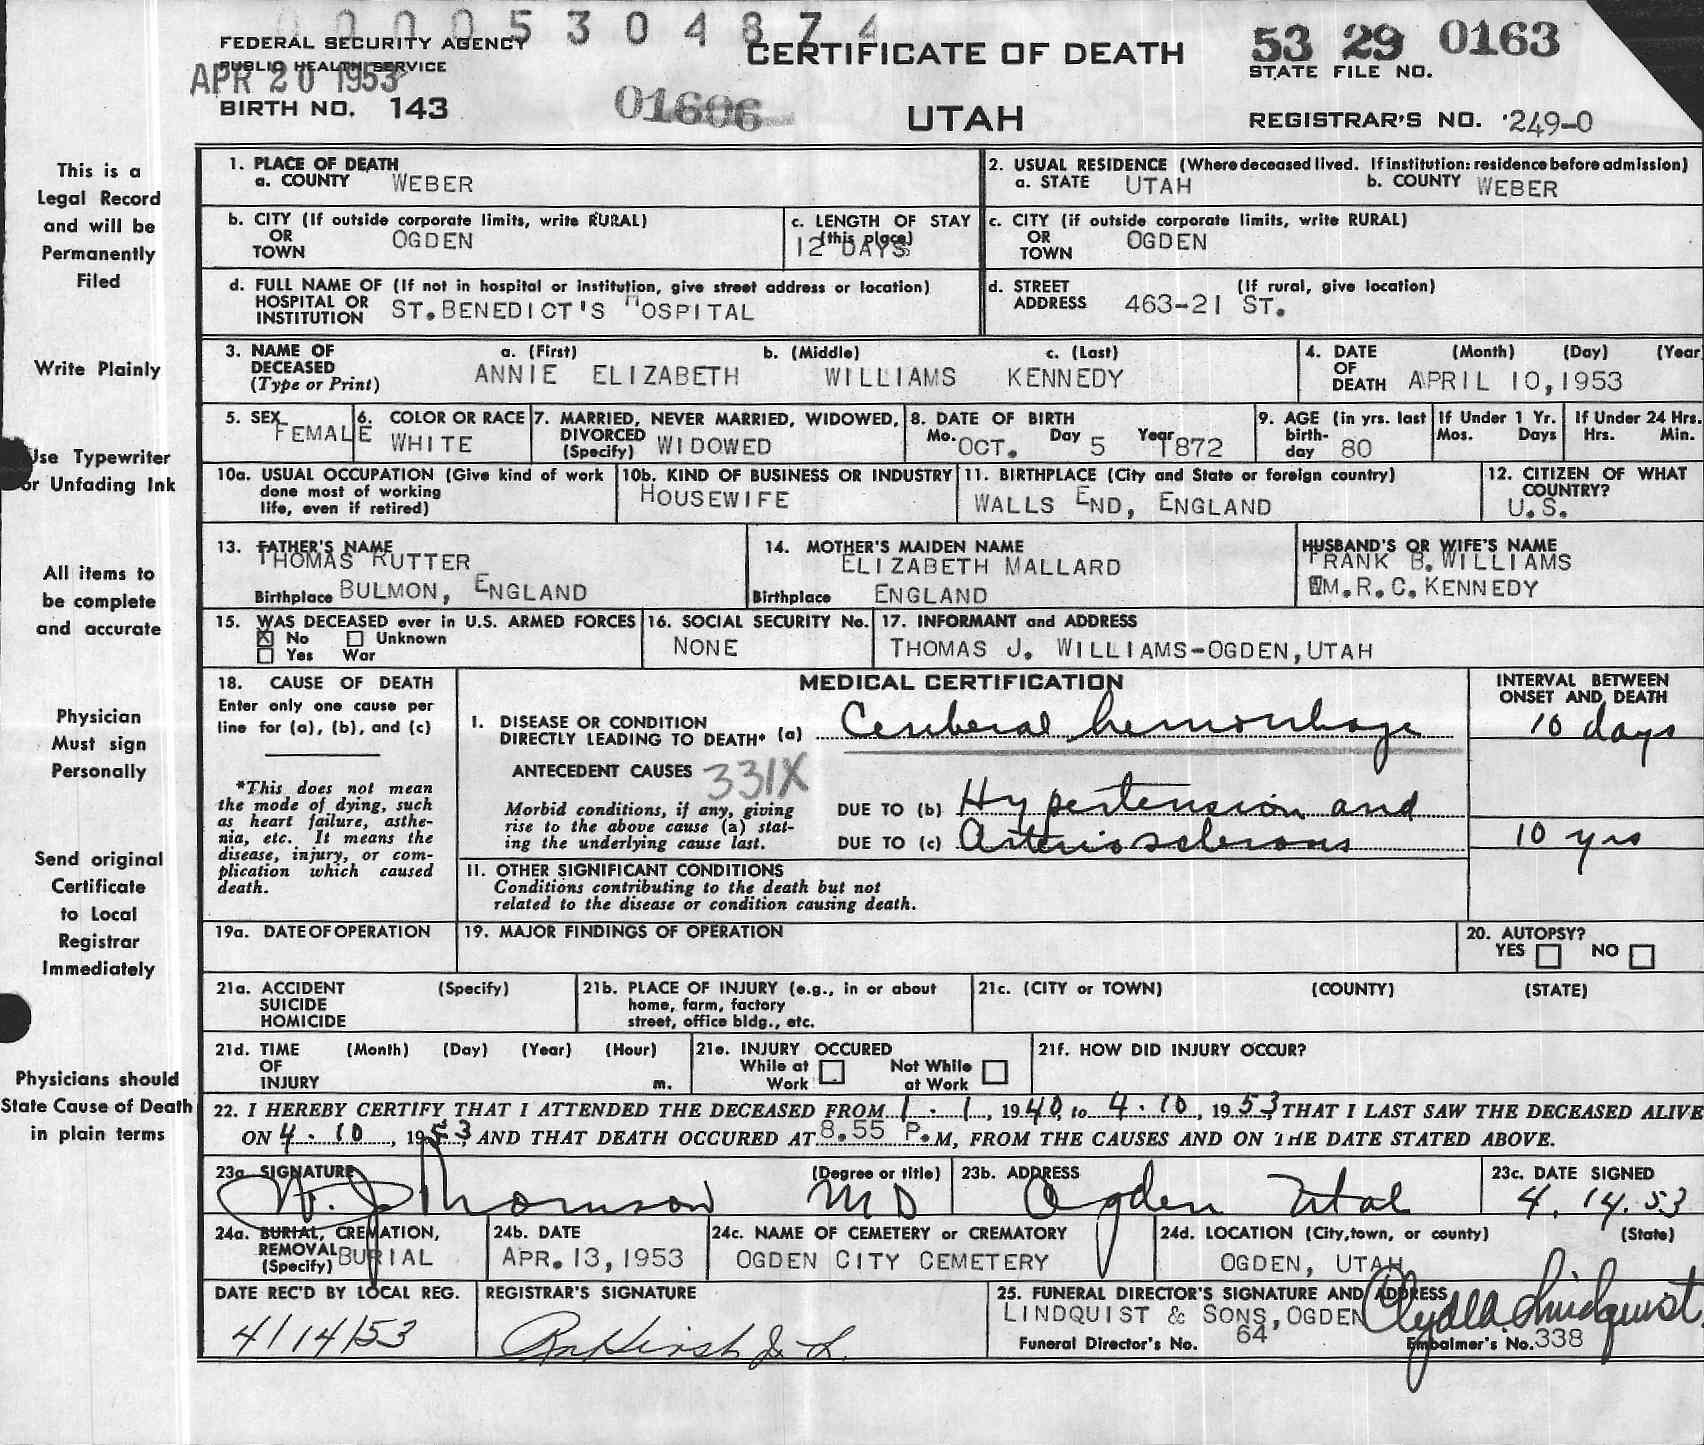 00005304874
FEDERAL SECURITY AGENCY
PUBLIC HEALTH SERVICE
APR 20 1953
BIRTH NO. 143
01606
CERTIFICATE OF DEATH
UTAH
53 29 0163
STATE FILE NO.
REGISTRAR'S NO. 249-0
This is a
Legal Record
and will be
Permanently
Filed
Write Plainly
Use Typewriter
or Unfading Ink
All items to
be complete
and accurate
Physician
Must sign
Personally
Send original
Certificate
to Local
Registrar
Immediately
Physicians should
State Cause of Death
in plain terms
1. PLACE OF DEATH
a. COUNTY WEBER
2. USUAL RESIDENCE (Where deceased lived. If institution: residence before admission)
a. STATE UTAH b. COUNTY WEBER
b. CITY (If outside corporate limits, write RURAL)
OR
TOWN OGDEN
c. LENGTH OF STAY
(this place)
12 DAYS
c. CITY (if outside corporate limits, write RURAL)
OR
TOWN OGDEN
d. FULL NAME OF (If not in hospital or institution, give street address or location)
HOSPITAL OR
INSTITUTION ST.BENEDICT'S HOSPITAL
d. STREET (If rural, give location)
ADDRESS 463-21 ST.
3. NAME OF DECEASED a. (First) b. (Middle) c. (Last)
(Type or Print) ANNIE ELIZABETH WILLIAMS KENNEDY
4. DATE (Month) (Day) (Year
OF
DEATH APRIL 10,1953
5. SEX
FEMALE
6. COLOR OR RACE
WHITE
7. MARRIED, NEVER MARRIED, WIDOWED,
DIVORCED
(Specify) WIDOWED
8. DATE OF BIRTH
Mo. OCT. Day 5 Year 1872
9. AGE (in yrs. last
birth-
day 80
If Under 1 Yr.
Mos. Days
If Under 24 Hrs.
Hrs. Min.
10a. USUAL OCCUPATION (Give kind of work
done most of working
life, even if retired)
10b. KIND OF BUSINESS OR INDUSTRY
HOUSEWIFE
11. BIRTHPLACE (City and State or foreign country)
WALLS END, ENGLAND
12. CITIZEN OF WHAT
COUNTRY?
U.S.
13. FATHER'S NAME
THOMAS RUTTER
Birthplace BULMON, ENGLAND
14. MOTHER'S MAIDEN NAME
ELIZABETH MALLARD
Birthplace ENGLAND
HUSBAND'S OR WIFE'S NAME
FRANK B.WILLIAMS
WM.R.C.KENNEDY
15. WAS DECEASED ever in U.S. ARMED FORCES
No Unknown
Yes War
16. SOCIAL SECURITY No.
NONE
17. INFORMANT and ADDRESS
THOMAS J. WILLIAMS-OGDEN,UTAH
18. CAUSE OF DEATH
Enter only one cause per
line for (a), (b), and (c)
*This does not mean
the mode of dying, such
as heart failure, asthe-
nia, etc. It means the
disease, injury, or com-
plication which caused
death.
MEDICAL CERTIFICATION
INTERVAL BETWEEN
ONSET AND DEATH
I. DISEASE OR CONDITION
DIRECTLY LEADING TO DEATH* (a) Cerebral hemorrhage 10 days
ANTECEDENT CAUSES 331X
Morbid conditions, if any, giving
rise to the above cause (a) stat-
ing the underlying cause last.
DUE TO (b) Hypertension and
DUE TO (c) Arteriosclerosis 10 yrs
II. OTHER SIGNIFICANT CONDITIONS
Conditions contributing to the death but not
related to the disease or condition causing death.
19a. DATE OF OPERATION
19. MAJOR FINDINGS OF OPERATION
20. AUTOPSY?
YES NO
21a. ACCIDENT (Specify)
SUICIDE
HOMICIDE
21b. PLACE OF INJURY (e.g., in or about
home, farm, factory
street, office bldg., etc.
21c. (CITY or TOWN) (COUNTY) (STATE)
21d. TIME (Month) (Day) (Year) (Hour)
OF
INJURY m.
21e. INJURY OCCURED
While at Work
Not While at Work
21f. HOW DID INJURY OCCUR?
22. I HEREBY CERTIFY THAT I ATTENDED THE DECEASED FROM 1 . 1, 1940, to 4 . 10, 1953 THAT I LAST SAW THE DECEASED ALIVE
ON 4 . 10, 1953, AND THAT DEATH OCCURED AT 8.55 P.M, FROM THE CAUSES AND ON THE DATE STATED ABOVE.
23a. SIGNATURE (Degree or title)
W. J. Thomson MD
23b. ADDRESS
Ogden Utah
23c. DATE SIGNED
4. 14. 53
24a. BURIAL, CREMATION,
REMOVAL
(Specify) BURIAL
24b. DATE
APR.13,1953
24c. NAME OF CEMETERY or CREMATORY
OGDEN CITY CEMETERY
24d. LOCATION (City,town, or county) (State)
OGDEN, UTAH
DATE REC'D BY LOCAL REG.
4/14/53
REGISTRAR'S SIGNATURE
25. FUNERAL DIRECTOR'S SIGNATURE AND ADDRESS
LINDQUIST & SONS,OGDEN Clyde Lindquist
Funeral Director's No. 64 Embalmer's No. 338